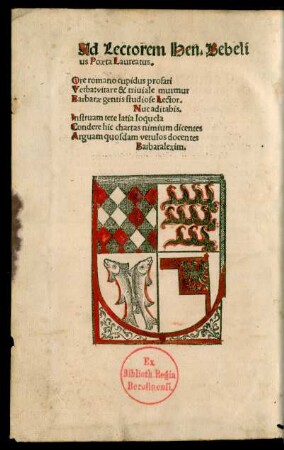 Ad Lectorem Hen. Bebeli
us Poeta Laureatus.
Ore romano cupidus profari
Verba: vitare & triuiale murmur
Barbaræ gentis studiose Lector.
Huc aditabis.
Instruam te te latia loquela
Condere hic chartas nimium dicentes
Arguam quosdam vetulos docentes
Barbaralexim.
Ex
Biblioth. Regia
Berolinensi.